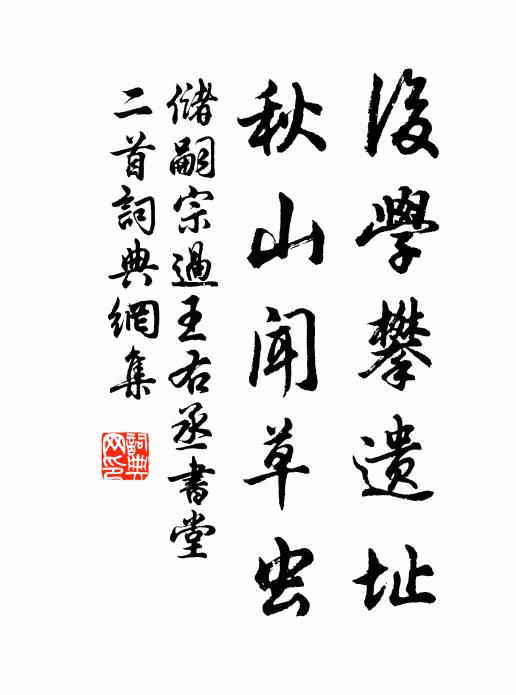 後學攀遺址
秋山聞草虫
儲嗣宗過王右丞書堂
二首詞典網集
詞典网印